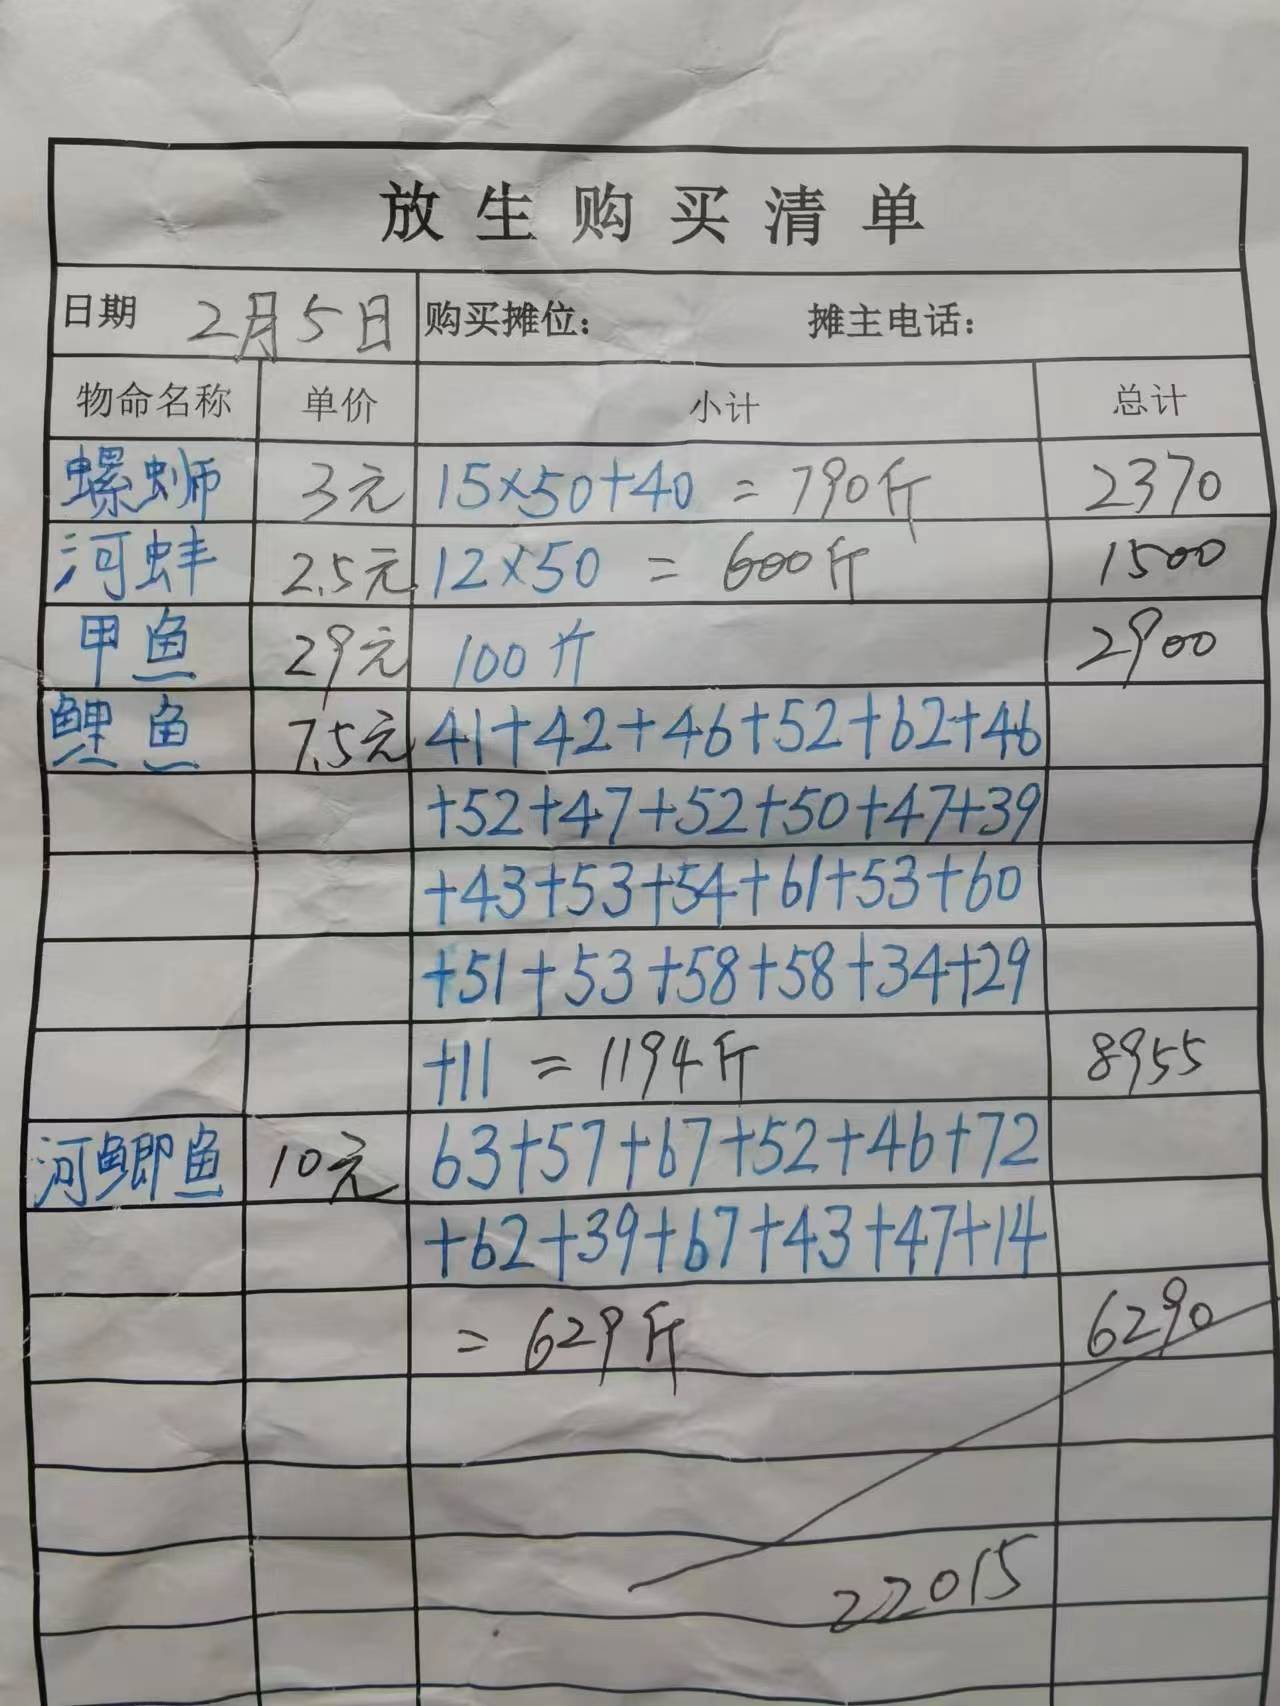 放生购买清单
日期 2月5日 购买摊位: 摊主电话:
物命名称 单价 小计 总计
螺蛳 3元 15×50+40 = 790斤 2370
河蚌 2.5元 12×50 = 600斤 1500
甲鱼 29元 100斤 2900
鲤鱼 7.5元 41+42+46+52+62+46
+52+47+52+50+47+39
+43+53+54+61+53+60
+51+53+58+58+34+29
+11 = 1194斤 8955
河鲫鱼 10元 63+57+67+52+46+72
+62+39+67+43+47+14
= 629斤 6290
22015